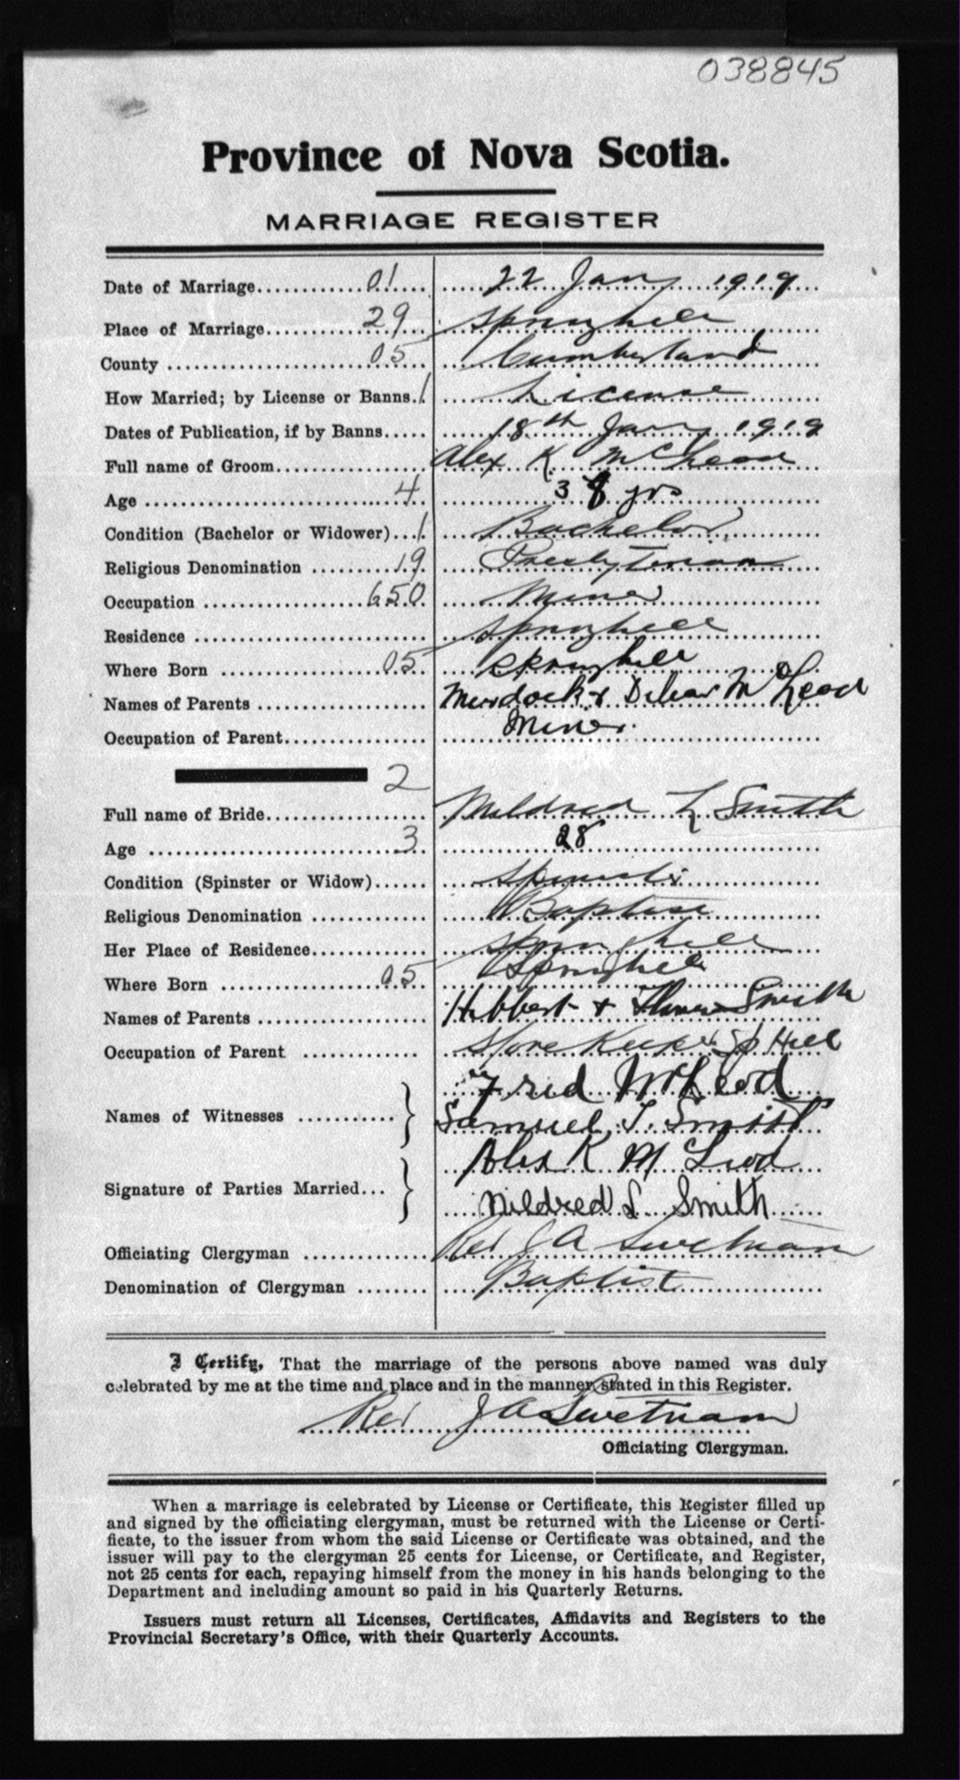 038845
Province of Nova Scotia.
MARRIAGE REGISTER
Date of Marriage............01.... 22 Jan 1919
Place of Marriage..........29... Springhill
County ......................05... Cumberland
How Married; by License or Banns.1 License
Dates of Publication, if by Banns..... 18th Jany 1919
Full name of Groom................ Alex K McLeod
Age ..........................4.. 38 yrs
Condition (Bachelor or Widower)...1. Bachelor
Religious Denomination ........19. Presbyterian
Occupation .................650. Miner
Residence ........................ Springhill
Where Born .................05. Springhill
Names of Parents .................. Murdock & McLeod
Occupation of Parent............... Miner
2
Full name of Bride.................. Mildred L Smith
Age ..........................3.. 28
Condition (Spinster or Widow)...... Spinster
Religious Denomination ............ Baptist
Her Place of Residence............. Springhill
Where Born .................05. Springhill
Names of Parents .................. Hibbert & Smith
Occupation of Parent ............. Store Keeper Sp Hill
Fred McLeod
Names of Witnesses ........... }
Samuel T. Smith
Alex K McLeod
Signature of Parties Married... }
Mildred L Smith
Officiating Clergyman .............. Rev J A Swetnam
Denomination of Clergyman ........ Baptist
I Certify, That the marriage of the persons above named was duly
celebrated by me at the time and place and in the manner stated in this Register.
Rev J A Swetnam
Officiating Clergyman.
When a marriage is celebrated by License or Certificate, this Register filled up
and signed by the officiating clergyman, must be returned with the License or Certi-
ficate, to the issuer from whom the said License or Certificate was obtained, and the
issuer will pay to the clergyman 25 cents for License, or Certificate, and Register,
not 25 cents for each, repaying himself from the money in his hands belonging to the
Department and including amount so paid in his Quarterly Returns.
Issuers must return all Licenses, Certificates, Affidavits and Registers to the
Provincial Secretary's Office, with their Quarterly Accounts.